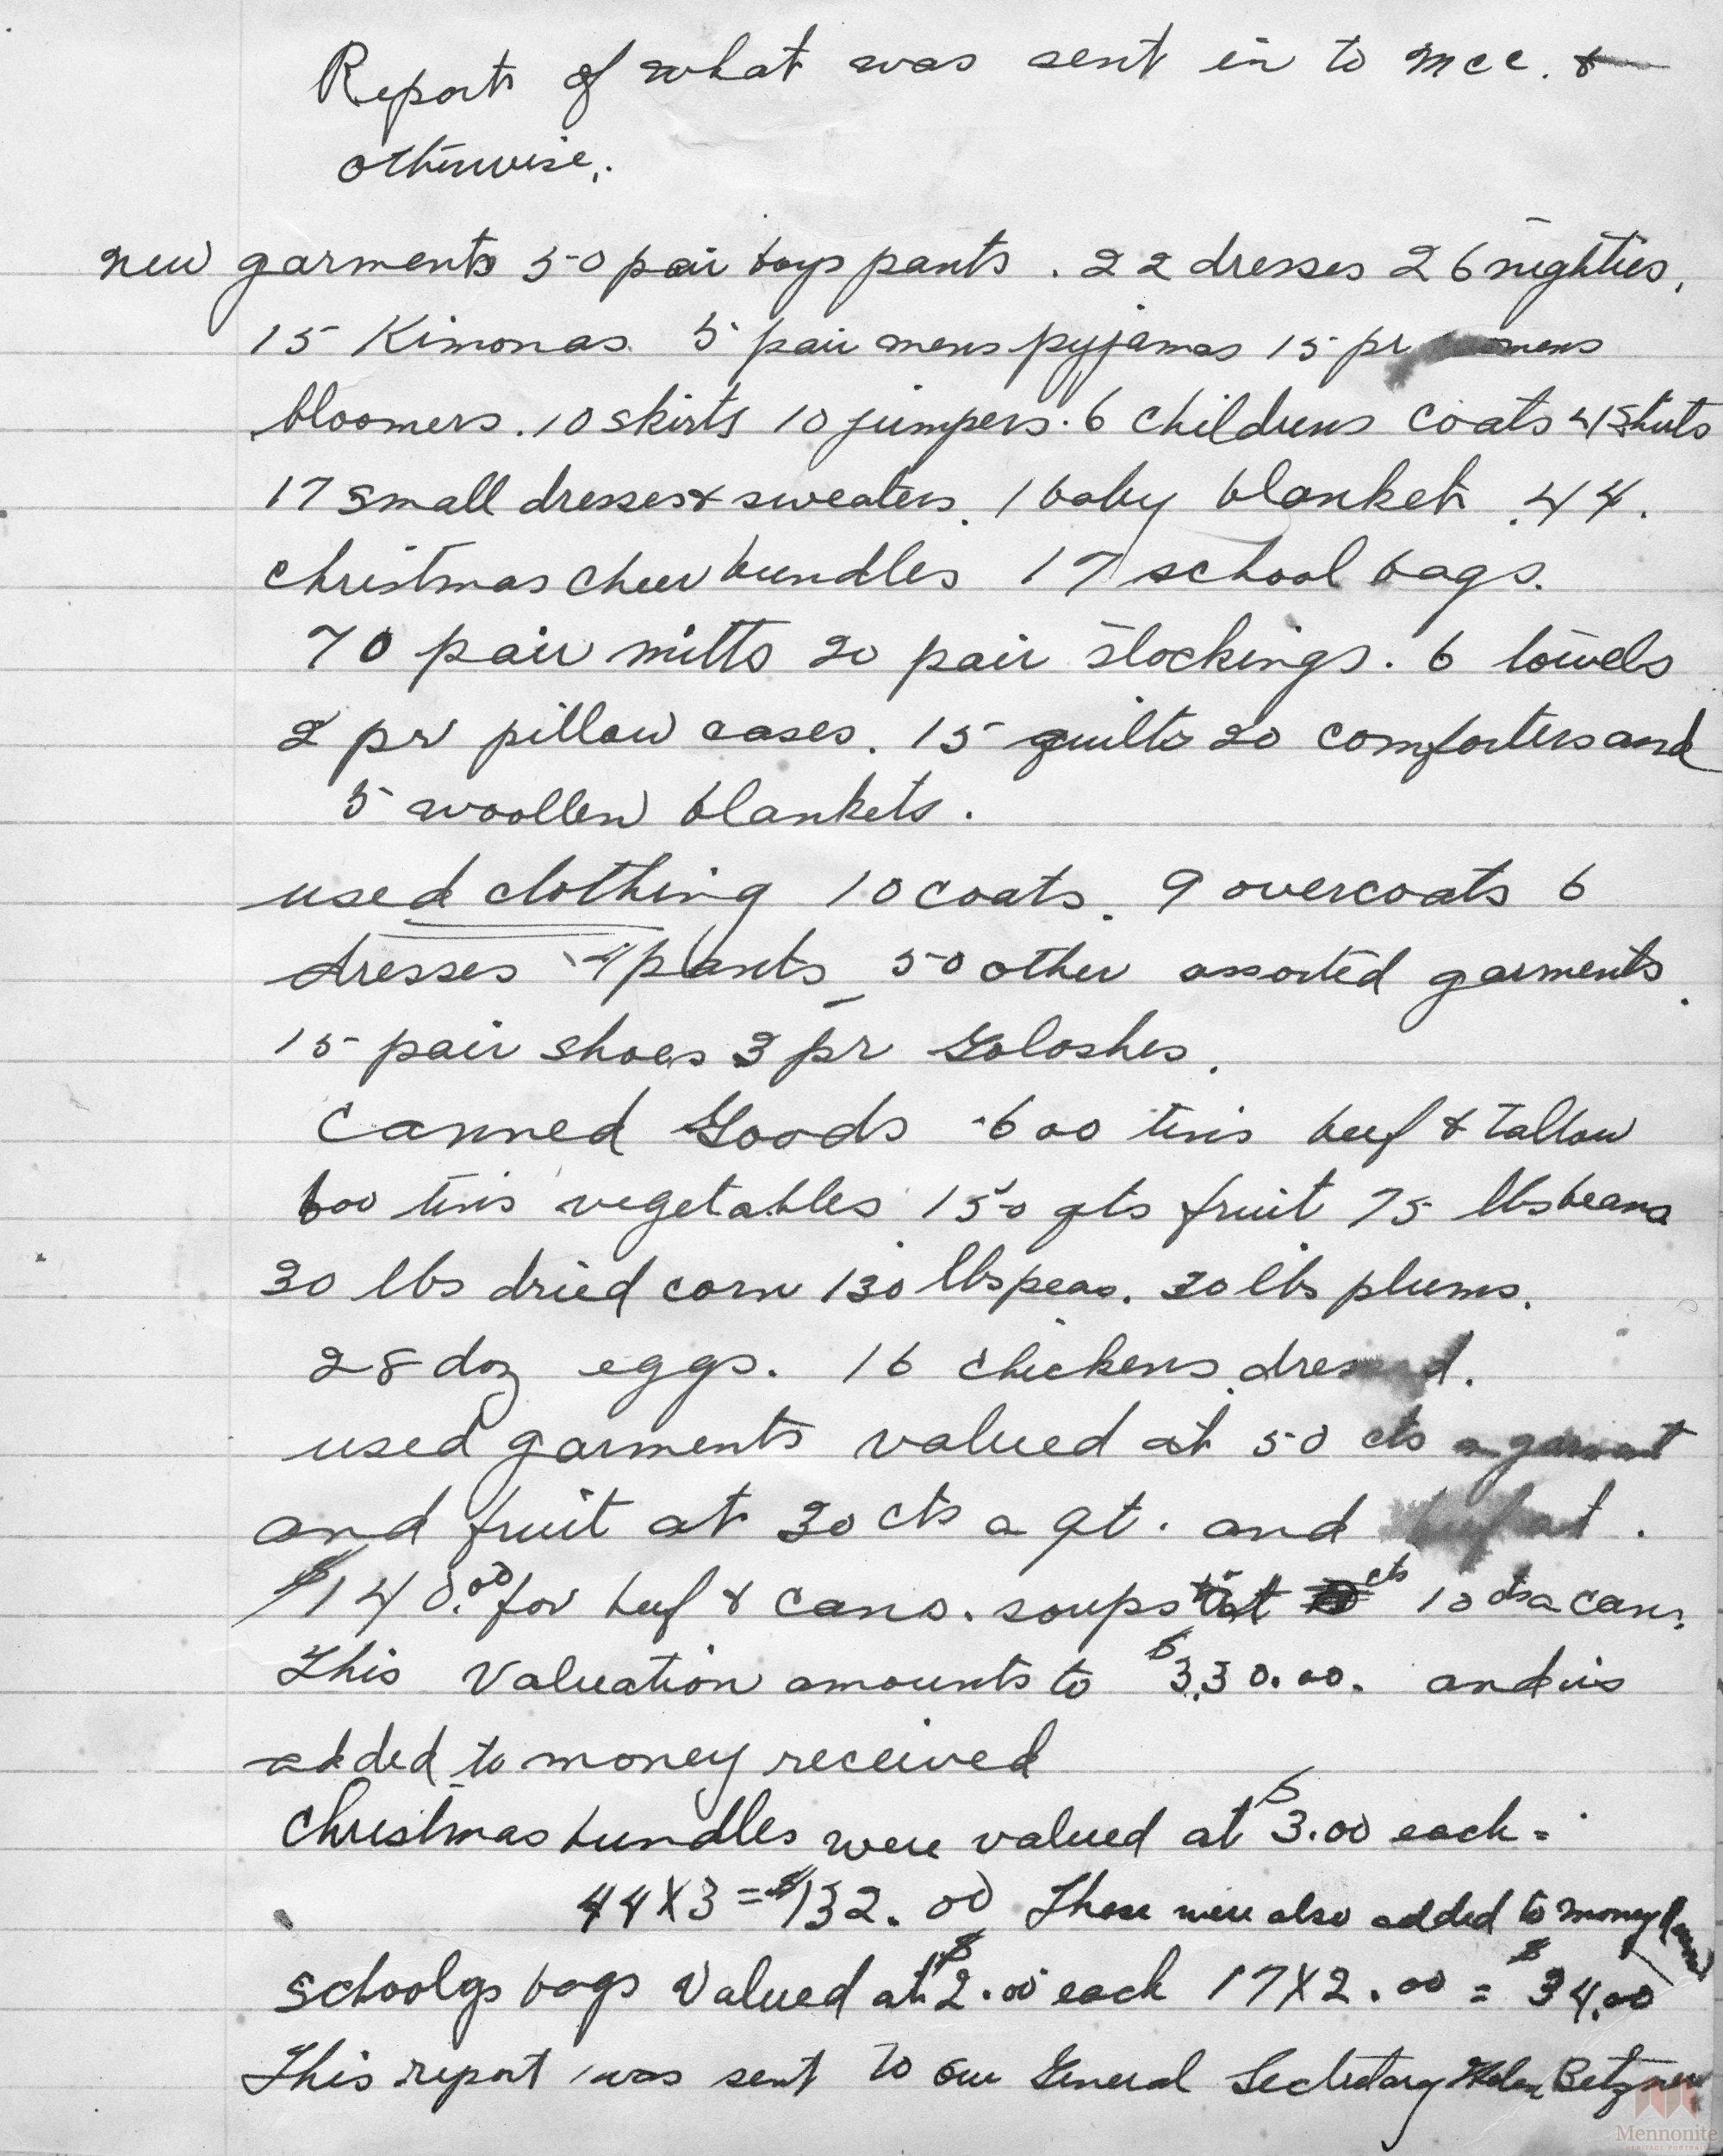 Report of what was sent in to MCC. &
otherwise.
new garments 50 pair boys pants. 22 dresses 26 nighties,
15 Kimonas. 5 pair mens pyjamas 15 pr womens
bloomers. 10 skirts 10 jumpers. 6 childrens coats 4 shirts
17 small dresses & sweaters. 1 baby blanket. 44.
christmas cheer bundles 17 school bags.
70 pair mitts 20 pair stockings. 6 towels
2 pr pillow cases. 15 quilts 20 comforters and
5 woollen blankets.
used clothing 10 coats. 9 overcoats 6
dresses 4 pants 50 other assorted garments.
15 pair shoes 3 pr Goloshes.
Canned Goods - 600 tins beef & tallow
600 tins vegetables 150 qts fruit 75 lbs beans
30 lbs dried corn 130 lbs peas. 30 lbs plums.
28 doz eggs. 16 chickens dressed.
used garments valued at 50 cts a garment
and fruit at 30 cts a qt. and beef at.
$140.00 for beef & cans. soups at cts 10 cts a can.
This Valuation amounts to $330.00. and is
added to money received
Christmas bundles were valued at $3.00 each =
44 X 3 = $132.00 These were also added to money
schoolgs bags Valued at $2.00 each 17 X 2.00 = $34.00
This report was sent to our General Secretary Helen Betzner
Mennonite
HERITAGE PORTRAIT